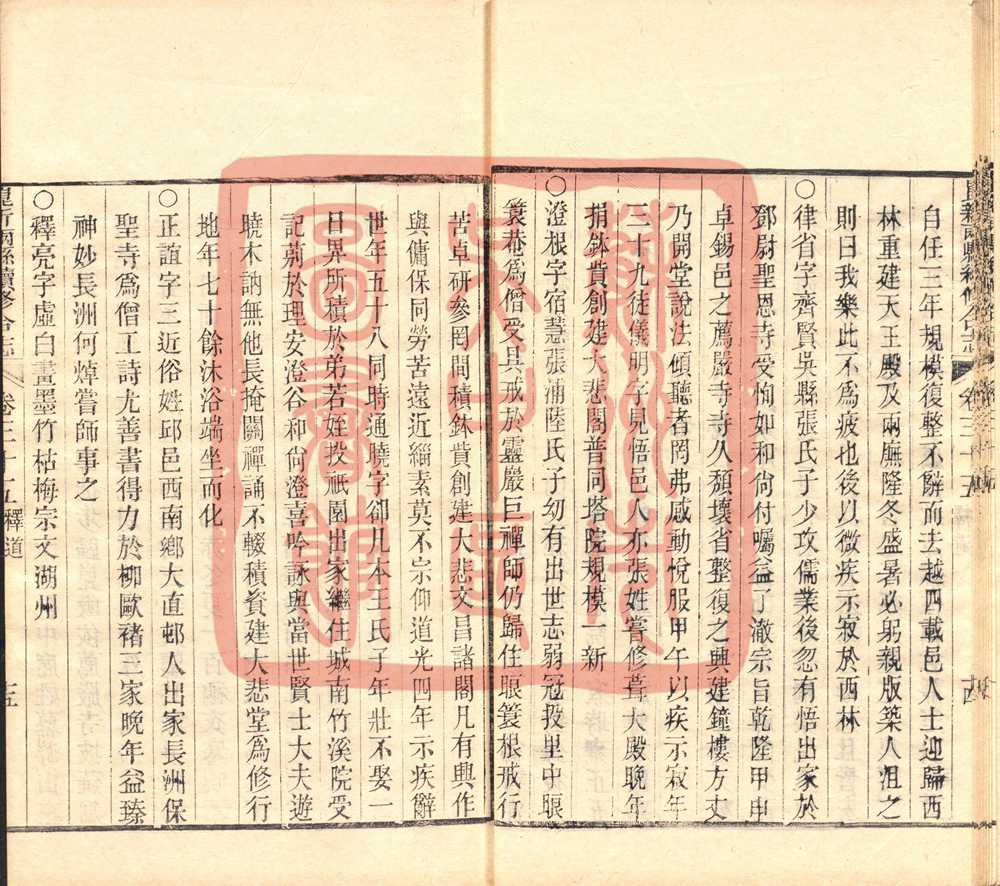 自任三年規模復整不辭而去越四載邑人士迎歸西
林重建天王殿及兩廡隆冬盛暑必躬親版築人沮之
則曰我樂此不爲疲也後以微疾示寂於西林
○律省字齊賢吳縣張氏子少攻儒業後忽有悟出家於
鄧尉聖恩寺受恂如和尙付囑益了澈宗旨乾隆甲申
卓錫邑之薦嚴寺寺久頽壞省整復之興建鐘樓方丈
乃開堂說法傾聽者罔弗感動悅服甲午以疾示寂年
三十九徒儀明字見悟邑人亦張姓嘗修葺大殿晚年
捐鉢貲創建大悲閣普同塔院規模一新
○澄根字宿慧張浦陸氏子幼有出世志弱冠投里中睱
簑菴爲僧受具戒於靈巖巨禪師仍歸住睱簑根戒行
苦卓研參罔間積鉢貲創建大悲文昌諸閣凡有興作
與傭保同勞苦遠近緇素莫不宗仰道光四年示疾辭
世年五十八同時通曉字卻凡本王氏子年壯不娶一
日畀所積於弟若姪投祇園出家繼住城南竹溪院受
記莂於理安澄谷和尙澄喜吟詠與當世賢士大夫遊
曉木訥無他長掩關禪誦不輟積資建大悲堂爲修行
地年七十餘沐浴端坐而化
○正誼字三近俗姓邱邑西南鄉大直邨人出家長洲保
聖寺爲僧工詩尤善書得力於柳歐褚三家晚年益臻
神妙長洲何焯嘗師事之
○釋亮字虛白畫墨竹枯梅宗文湖州
崑新兩縣續修合志 卷三十五 釋道 十五